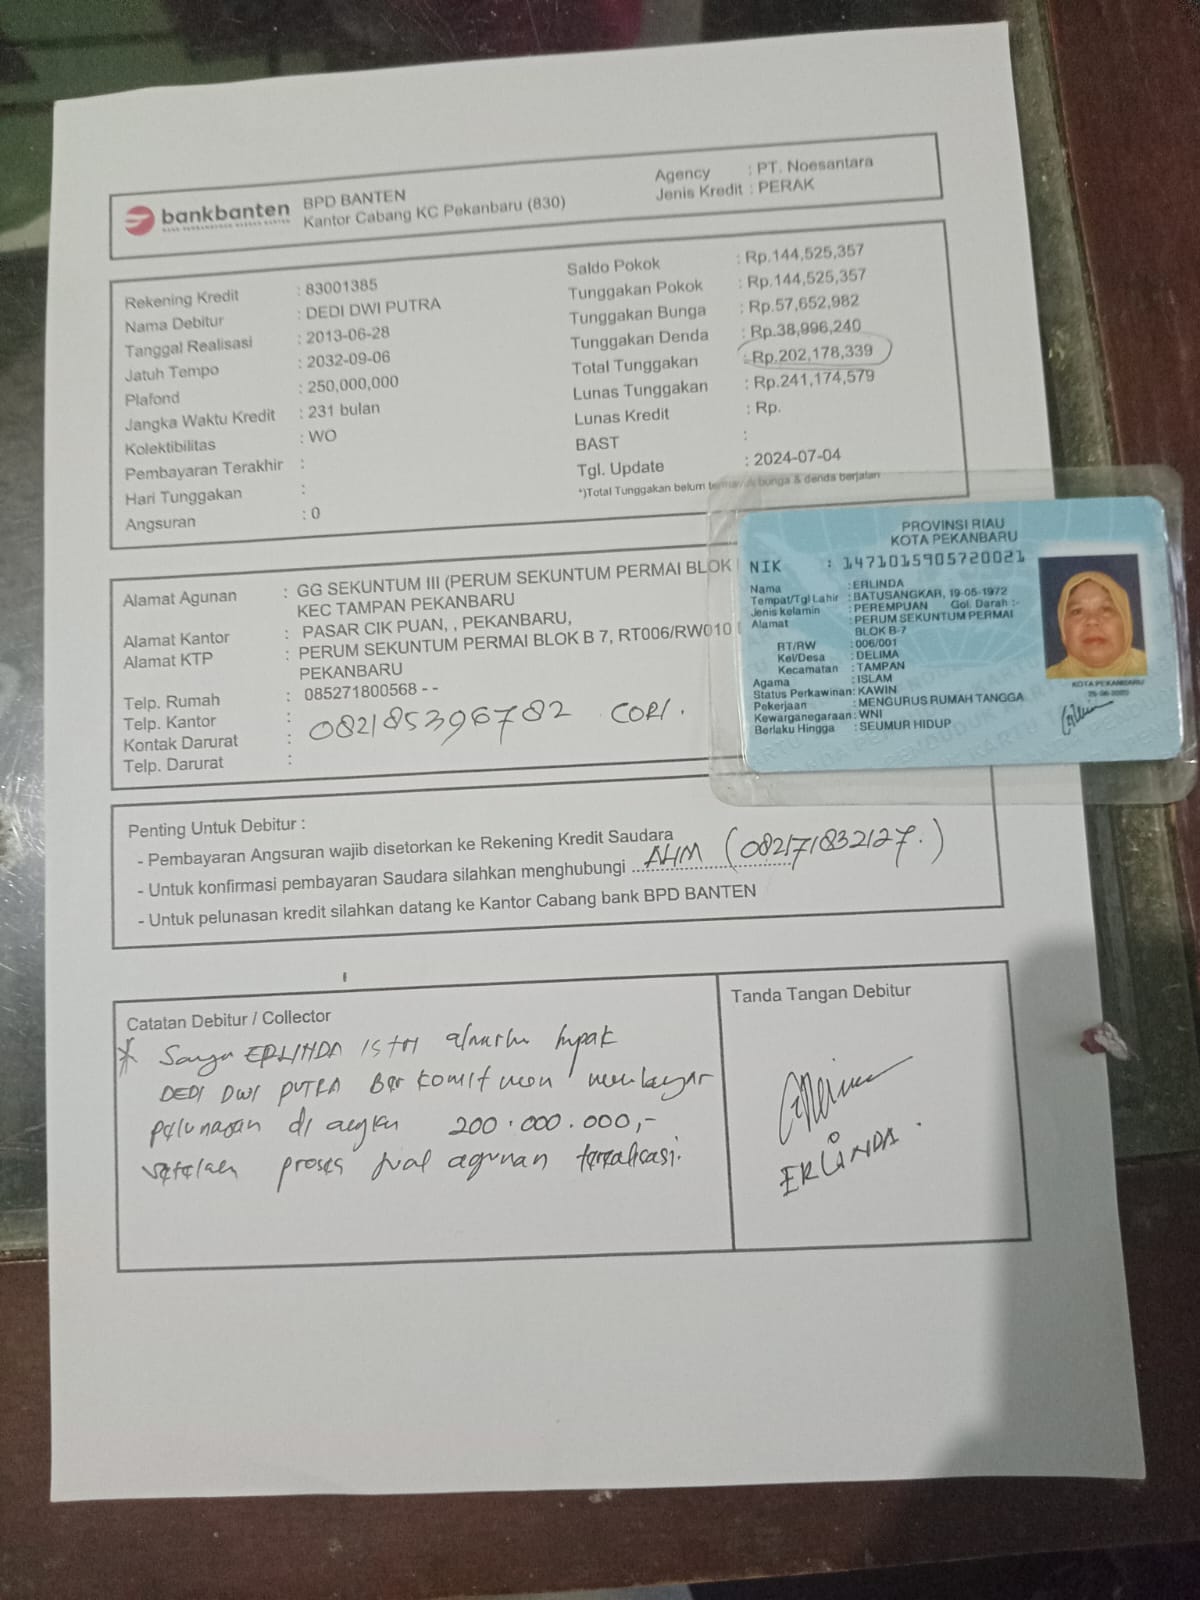 bankbanten
BPD BANTEN
Kantor Cabang KC Pekanbaru (830)
Agency : PT. Noesantara
Jenis Kredit : PERAK
Rekening Kredit : 83001385
Nama Debitur : DEDI DWI PUTRA
Tanggal Realisasi : 2013-06-28
Jatuh Tempo : 2032-09-06
Plafond : 250,000,000
Jangka Waktu Kredit : 231 bulan
Kolektibilitas : WO
Pembayaran Terakhir :
Hari Tunggakan :
Angsuran : 0
Saldo Pokok : Rp.144,525,357
Tunggakan Pokok : Rp.144,525,357
Tunggakan Bunga : Rp.57,652,982
Tunggakan Denda : Rp.38,996,240
Total Tunggakan : Rp.202,178,339
Lunas Tunggakan : Rp.241,174,579
Lunas Kredit : Rp.
BAST :
Tgl. Update : 2024-07-04
*)Total Tunggakan belum termasuk bunga & denda berjalan
Alamat Agunan : GG SEKUNTUM III (PERUM SEKUNTUM PERMAI BLOK
KEC TAMPAN PEKANBARU
Alamat Kantor : PASAR CIK PUAN, , PEKANBARU,
Alamat KTP : PERUM SEKUNTUM PERMAI BLOK B 7, RT006/RW010
PEKANBARU
Telp. Rumah : 085271800568 - -
Telp. Kantor :
Kontak Darurat : 082185396782 CORI.
Telp. Darurat :
PROVINSI RIAU
KOTA PEKANBARU
NIK : 1471015905720021
Nama : ERLINDA
Tempat/Tgl Lahir : BATUSANGKAR, 19-05-1972
Jenis kelamin : PEREMPUAN Gol. Darah :-
Alamat : PERUM SEKUNTUM PERMAI
BLOK B-7
RT/RW : 006/001
Kel/Desa : DELIMA
Kecamatan : TAMPAN
Agama : ISLAM
Status Perkawinan: KAWIN
Pekerjaan : MENGURUS RUMAH TANGGA
Kewarganegaraan: WNI
Berlaku Hingga : SEUMUR HIDUP
KOTA PEKANBARU
Penting Untuk Debitur :
- Pembayaran Angsuran wajib disetorkan ke Rekening Kredit Saudara
- Untuk konfirmasi pembayaran Saudara silahkan menghubungi AHM (082171832127.)
- Untuk pelunasan kredit silahkan datang ke Kantor Cabang bank BPD BANTEN
Catatan Debitur / Collector
* Saya ERLINDA ISTRI almarhum bapak
DEDI DWI PUTRA Berkomitmen membayar
pelunasan di angka 200.000.000,-
setelah proses jual agunan terealisasi.
Tanda Tangan Debitur
ERLINDA.